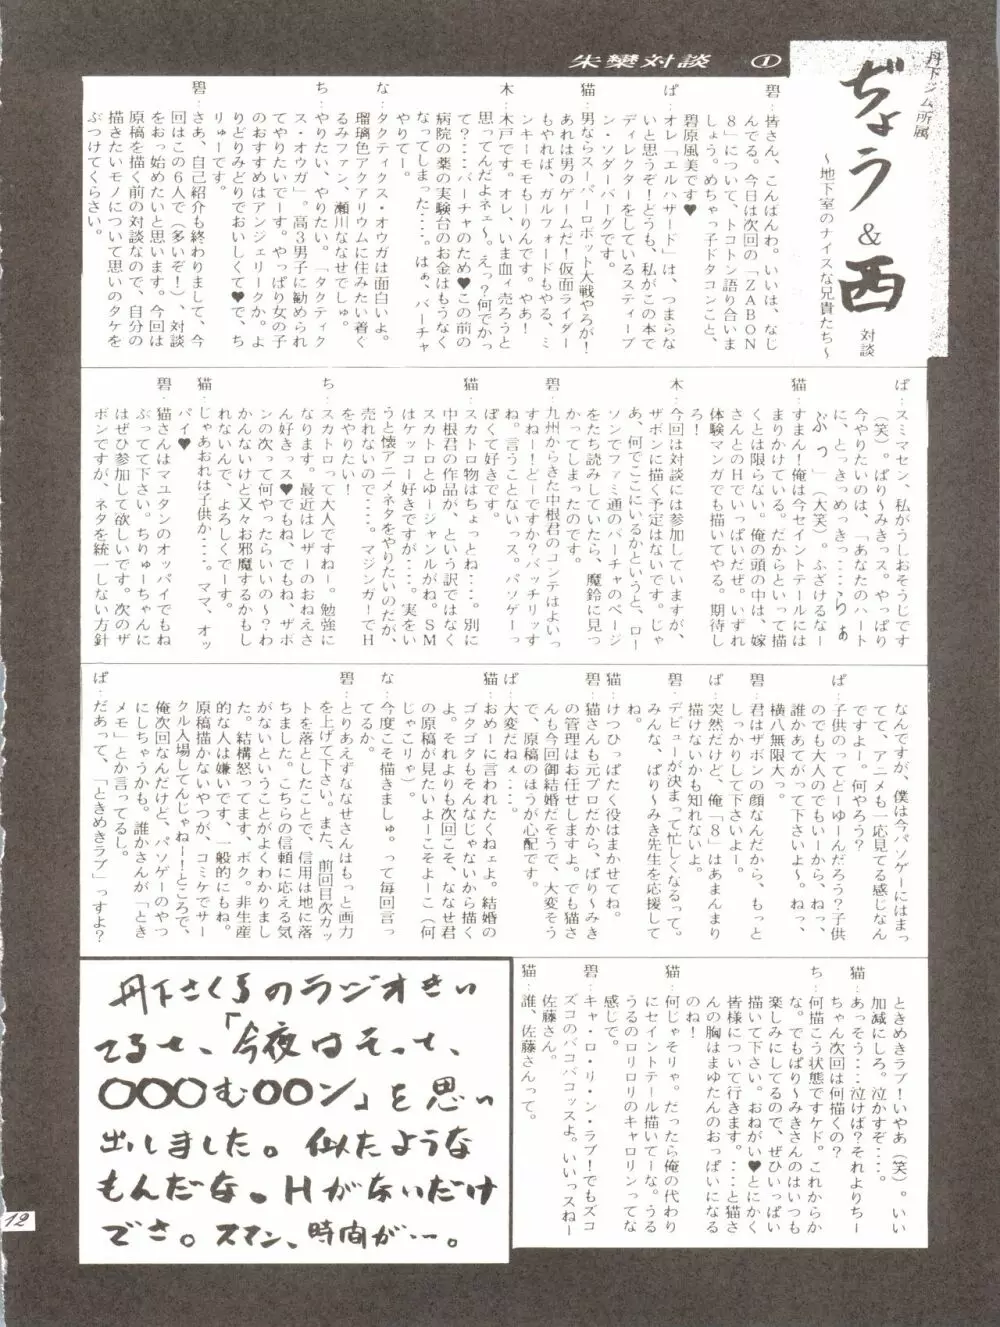 丹下ジム所属
ぢょう&西
対談
～地下室のナイスな兄貴たち～
朱欒対談 ①
碧：皆さん、こんばんわ。いいは、なじ
んでる。今日は次回の「ZABON
8」について、トコトン語り合いま
しょう。めちゃっ子ドタコンこと、
碧原風美です♥
ぱ：オレ「エルハザード」は、つまらな
いと思うぞ！どうも、私がこの本で
ディレクターをしているスティーブ
ン・ソダーバーグです。
猫：男ならスーパーロボット大戦やろが！
あれは男のゲームだ！仮面ライダー
もやれば、ガルフォードもやる、ミ
ンキーモモもーりんです。やあ！
木：木戸です。オレ、いま血ィ売ろうと
思ってんだよネェ～。えっ？何でかっ
て？‥‥バーチャのため♥この前の
病院の薬の実験台のお金はもうなく
なってしまった‥‥。はぁ、バーチャ
やりてー。
な：タクティクス・オウガは面白いよ。
瑠璃色アクアリウムに住みたい着ぐ
るみファン、瀬川ななせでしゅ。
ち：やりたい、やりたい。「タクティク
ス・オウガ」。高3男子に勧められ
てやりたいでーす。やっぱり女の子
のおすすめはアンジェリークか。よ
りどりみどりでおいしくて♥で、ち
りゅーです。
碧：さあ、自己紹介も終わりまして、今
回はこの6人で（多いぞ！）、対談
をおっ始めたいと思います。今回は
原稿を描く前の対談なので、自分の
描きたいモノについて思いのタケを
ぶつけてくらさい。
ぱ：スミマセン、私がうしおそうじです
（笑）。ぱり～みきっス。やっぱり
今やりたいのは、「あなたのハート
に、とっきっめっきっ‥‥らりぁ
ぶっっ」（大笑）。ふざけるなー
猫：すまん！俺は今セイントテールには
まりかけている。だからといって描
くとは限らない。俺の頭の中は、嫁
さんとのHでいっぱいだぜ。いずれ
体験マンガでも描いてやる。期待し
ろ！
木：今回は対談には参加していますが、
ザボンに描く予定はないです。じゃ
あ、何でここにいるかというと、ロー
ソンでファミ通のバーチャのページ
をたち読みしていたら、魔鈴に見っ
かってしまったのです。
碧：九州からきた中根君のコンテはよいっ
すねー！どーですか？バッチリッす
ね。言うことないっス。パソゲーっ
ぽくて好きです。
猫：スカトロ物はちょっとね‥‥。別に
中根君の作品が、という訳ではなく
スカトロとゆージャンルがね。SM
はケッコー好きですが‥‥。実をい
うと懐アニメネタをやりたいのだが、
売れないので‥‥。マジンガーでH
をやりたい！
ち：スカトロって大人ですねー。勉強に
なります。最近はレザーのおねえさ
ん好きっス♥でもね、でもね、ザボ
ンの次って何やったらいいの～？わ
かんないけど又々お邪魔するかもし
れないんで、よろしくでーす。
猫：じゃあおれは子供か‥‥。ママ、オッ
パイ♥
碧：猫さんはマユタンのオッパイでもね
ぶってて下さい。ちりゅーちゃんに
はぜひ参加して欲しいです。次のザ
ボンですが、ネタを統一しない方針
なんですが、僕は今パソゲーにはまっ
てて、アニメも一応見てる感じなん
ですよ。何やろう？
ぱ：子供のってどーゆーんだろう？子供
のでも大人のでもいーから、ねっ、
誰かあてがって下さいよ～。ねっ、
横八無限大。
碧：君はザボンの顔なんだから、もっと
しっかりして下さいよー。
ぱ：突然だけど、俺「8」はあまんまり
描けないかも知れない。
碧：デビューが決まって忙しくなるって。
みんな、ぱり～みき先生を応援して
ね。
猫：けつひっぱたく役はまかせてね。
碧：猫さんも元プロだから、ぱり～みき
の管理はお任せしますよ。でも猫さ
んも今回御結婚だそうで、大変そう
で、原稿のほうが心配です。
ぱ：大変だねぇ‥‥。
猫：おめーに言われたくねェよ。結婚の
ゴタゴタもそんなじゃないから描く
よ。それよりも次回こそ、ななせ君
の原稿が見たいよーこそよーこ（何
じゃこりゃ）。
な：今度こそ描きましゅ。って毎回言っ
てるか。
碧：とりあえずななせさんはもっと画力
を上げて下さい。また、前回目次カッ
トを落としたことで、信用は地に落
ちました。こちらの信頼に応える気
がないということがよくわかりまし
た。結構怒ってます、ボク。非生産
的な人は嫌いです、一般的にもね。
原稿描かないやつが、コミケでサー
クル入場してんじゃねー！ところで、
俺次回なんだけど、パソゲーのやつ
にしちゃうかも。誰かさんが「とき
メモ」とか言ってるし。
ぱ：だあって、「ときめきラブ」っすよ？
ときめきラブ！いやあ（笑）。いい
加減にしろ。泣かすぞ‥‥。
猫：あっそう‥‥泣けば？それよりちー
ちゃん次回は何描くの？
ち：何描こう状態ですケド。これからか
な。でもぱり～みきさんのはいつも
楽しみにしてるので、ぜひいっぱい
描いて下さい。おねがい♥とにかく
皆様について行きます。‥‥と猫さ
んの胸はまゆたんのおっぱいになる
のね！
猫：何じゃそりゃ。だったら俺の代わり
にセイントテール描いてーな。うる
うるのロリロリのキャロリンってな
感じで。
碧：キャ・ロ・リ・ン・ラブ！でもズコ
ズコのバコバコッスよ。いいっスねー
佐藤さん。
猫：誰、佐藤さんって。
丹下さくらのラジオきい
てると、「今夜はそっと、
〇〇〇む〇〇ン」を思い
出しました。似たような
もんだな。Hがないだけ
でさ。スマン、時間が‥‥。
12